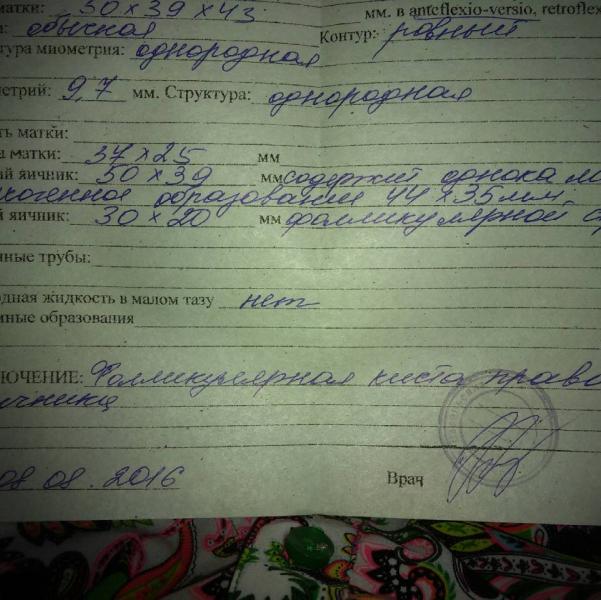 матки: 50 х 39 х 43 мм. в anteflexio-versio, retrofle
обычная Контур: ровный
тура миометрия: однородная
метрий: 9,7 мм. Структура: однородная
ть матки:
а матки: 37 х 25 мм
ый яичник: 50 х 39 мм содержит однока
образование 44 х 35 мм.
й яичник: 30 х 20 мм фолликулярной с
нные трубы:
одная жидкость в малом тазу нет
мные образования
ЛЮЧЕНИЕ: Фолликулярная киста право
ичника
08.08.2016 Врач